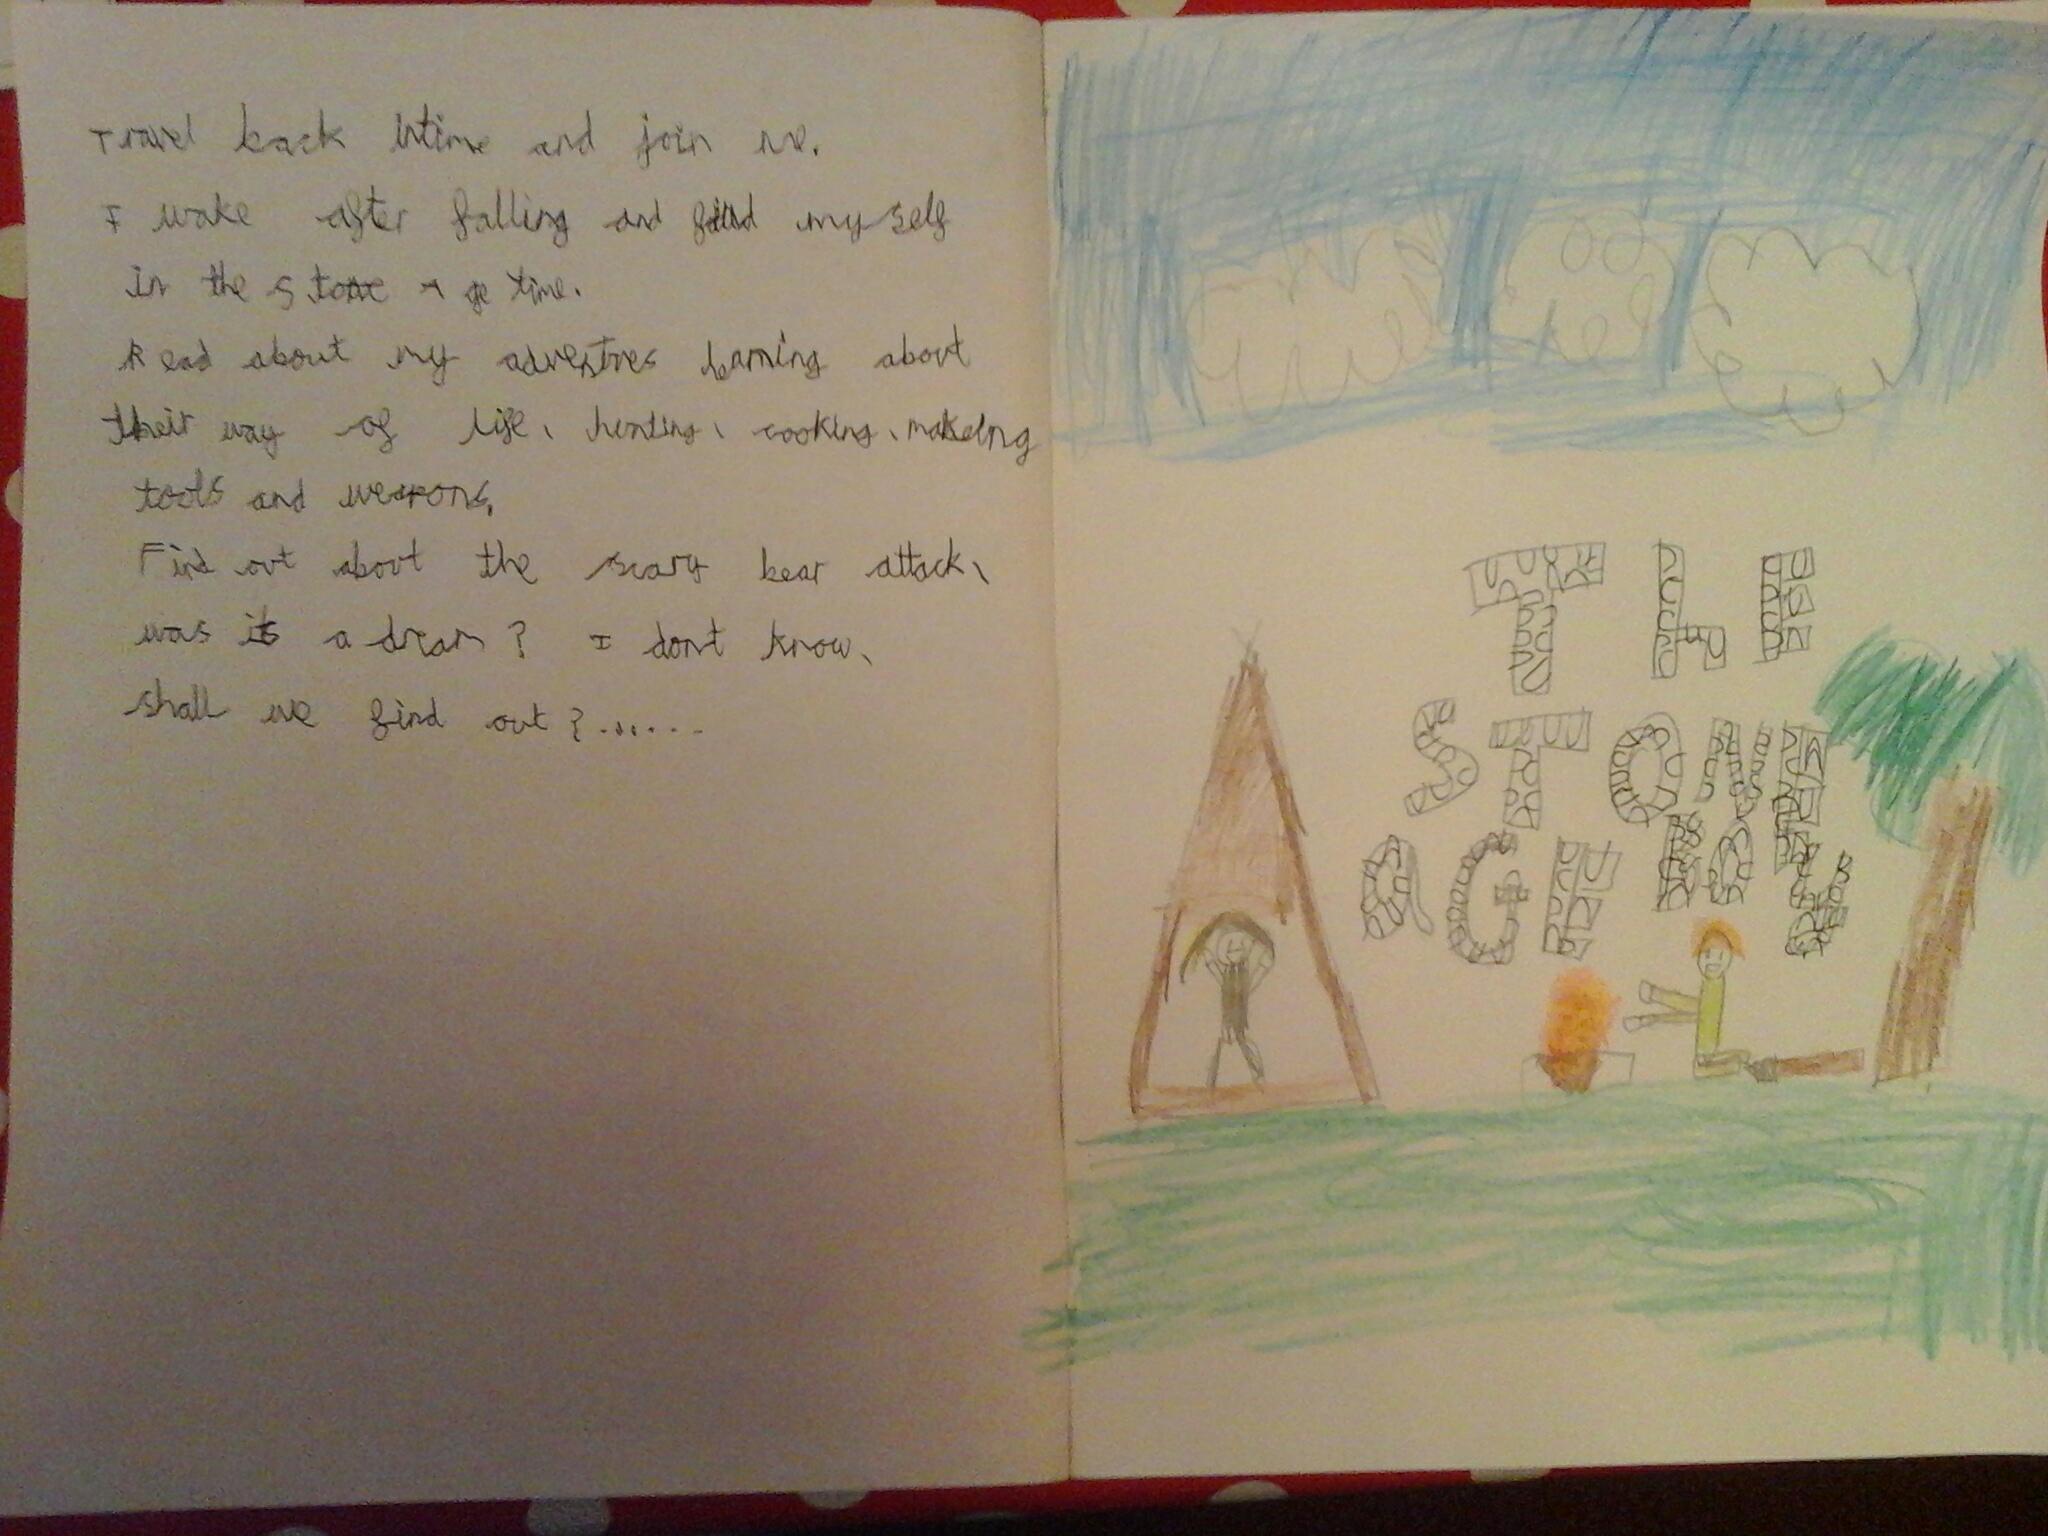 Travel back intime and join me.
I wake after falling and find my self
in the stone age time.
Read about my adventres learning about
their way of life, hunting, cooking, makeing
tools and weapons.
Find out about the scary bear attack,
was it a dream? I dont know,
shall we find out?......
THE
STONE
AGE BOY